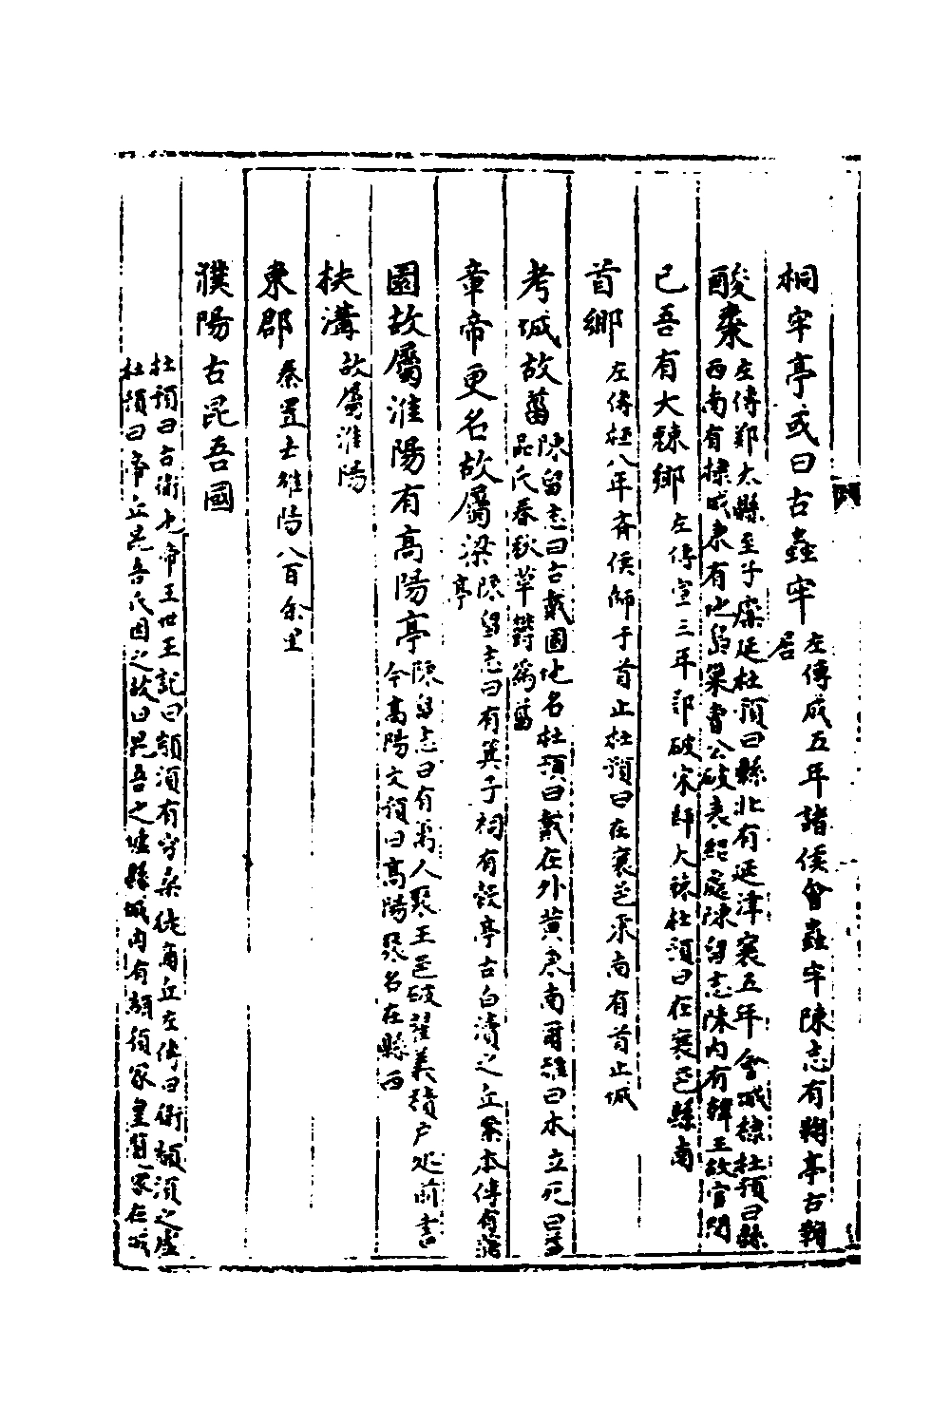 桐牢亭或曰古蟲牢左傳成五年諸侯會蟲牢陳志有鞠亭古鞠
居
酸棗左傳鄭太縣至于廩延杜預曰縣北有延津襄五年會城棣杜預曰縣
西南有棣城東有地烏巢曹公破袁紹處陳留志陳内有韓王故宫闕
已吾有大棘鄉左傳宣三年鄭破宋師大棘杜預曰在襄邑縣南
首鄉左傳桓八年齊侯師于首止杜預曰在襄邑東南有首止城
考城故菑陳留志曰古戴國地名杜預曰戴在外黄東南爾雅曰木立死曰菑
吕氏春秋草鬱爲菑
章帝更名故屬梁陳留志曰有箕子祠有穀亭古句瀆之丘案本傳有蒲
亭
圉故屬淮陽有高陽亭陳留志曰有萬人聚王邑破翟義積尸處前書
今高陽文穎曰高陽聚名在縣西
扶溝故屬淮陽
東郡秦置去雒陽八百余里
濮陽古昆吾國
杜預曰古衛也帝王世王記曰顓頊有守桑徙商丘左傳曰衛顓頊之虚
杜預曰帝丘昆吾氏因之故曰昆吾之墟縣城内有顓頊冢皇覽冢在城